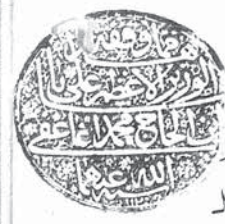 هذا وقف
الوزير الاعظم علي باشا
ابن الحاج محمد اغا عفى
الله عنهما